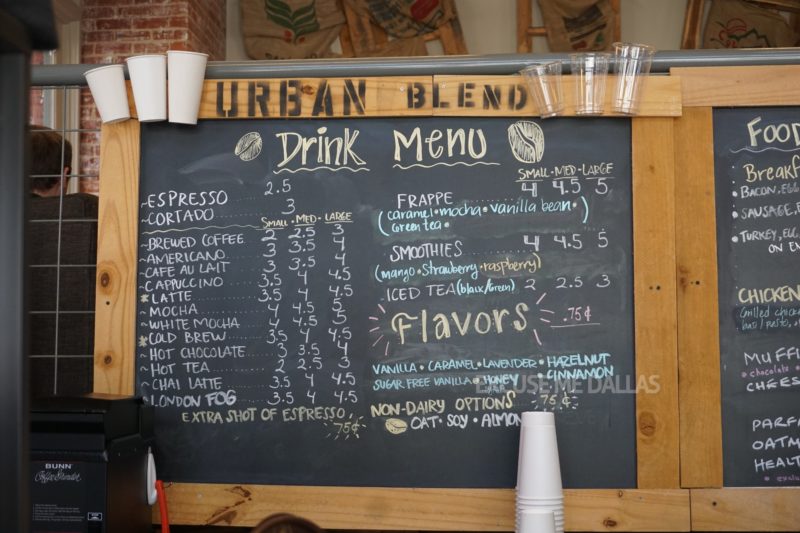 URBAN BLEND
Drink Menu
ESPRESSO 2.5
CORTADO 3
SMALL · MED · LARGE
BREWED COFFEE 2 2.5 3
AMERICANO 3 3.5 4
CAFE AU LAIT 3 3.5 4
CAPPUCCINO 3.5 4 4.5
*LATTE 3.5 4 4.5
MOCHA 4 4.5 5
WHITE MOCHA 4 4.5 5
*COLD BREW 3.5 4 4.5
HOT CHOCOLATE 3 3.5 4
HOT TEA 2 2.5 3
CHAI LATTE 3.5 4 4.5
LONDON FOG 3.5 4 4.5
EXTRA SHOT OF ESPRESSO 75¢
SMALL · MED · LARGE
FRAPPE 4 4.5 5
(caramel · mocha · vanilla bean ·
Green tea · )
SMOOTHIES 4 4.5 5
(mango · strawberry · raspberry)
ICED TEA (black/Green) 2 2.5 3
Flavors .75¢
VANILLA · CARAMEL · LAVENDER · HAZELNUT
SUGAR FREE VANILLA · HONEY · CINNAMON
NON-DAIRY OPTIONS .75¢
OAT · SOY · ALMON
USE ME DALLAS
Foo
Breakf
BACON, EGG
SAUSAGE,
TURKEY,
CHICKEN
Grilled chick
MUFF
chocolate
CHEES
PARFA
OATM
HEALT
BUNN
Coffee Grinder